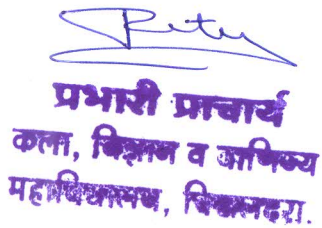 प्रभारी प्राचार्य
कला, विज्ञान व वाणिज्य
महाविद्यालय,